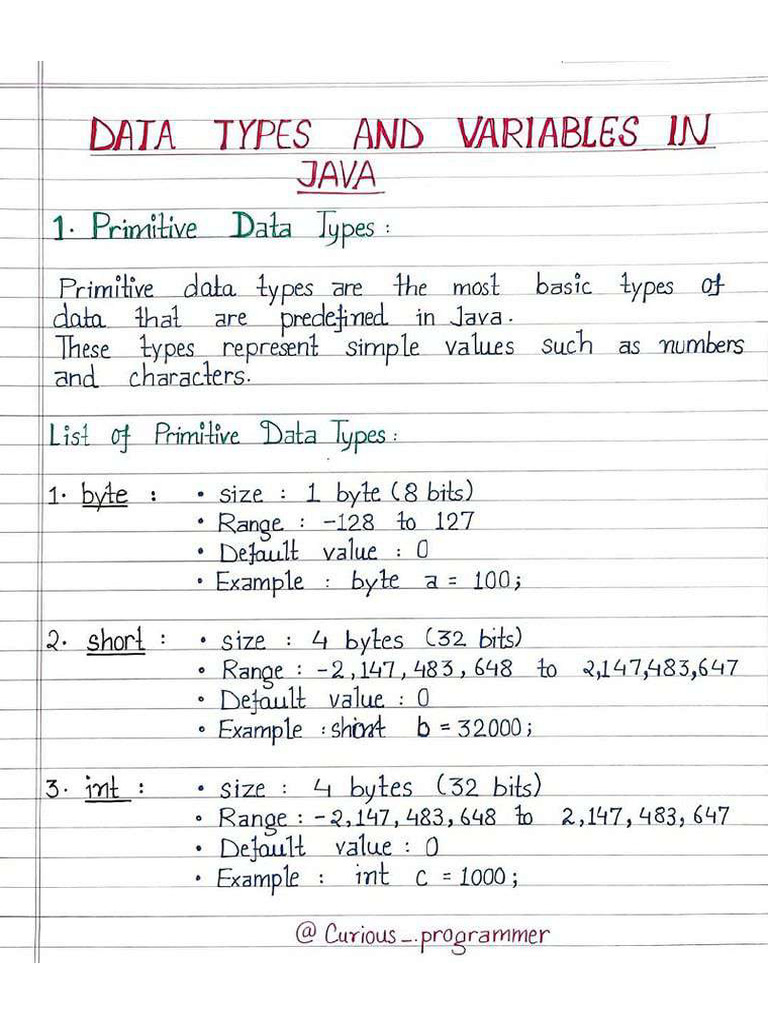 DATA TYPES AND VARIABLES IN
JAVA
1. Primitive Data Types :
Primitive data types are the most basic types of
data that are predefined in Java.
These types represent simple values such as numbers
and characters.
List of Primitive Data Types :
1. byte : • size : 1 byte (8 bits)
• Range : -128 to 127
• Default value : 0
• Example : byte a = 100;
2. short : • size : 4 bytes (32 bits)
• Range : -2,147,483,648 to 2,147,483,647
• Default value : 0
• Example : b = 32000;
3. int : • size : 4 bytes (32 bits)
• Range : -2,147,483,648 to 2,147,483,647
• Default value : 0
• Example : int c = 1000;
@ Curious_.programmer